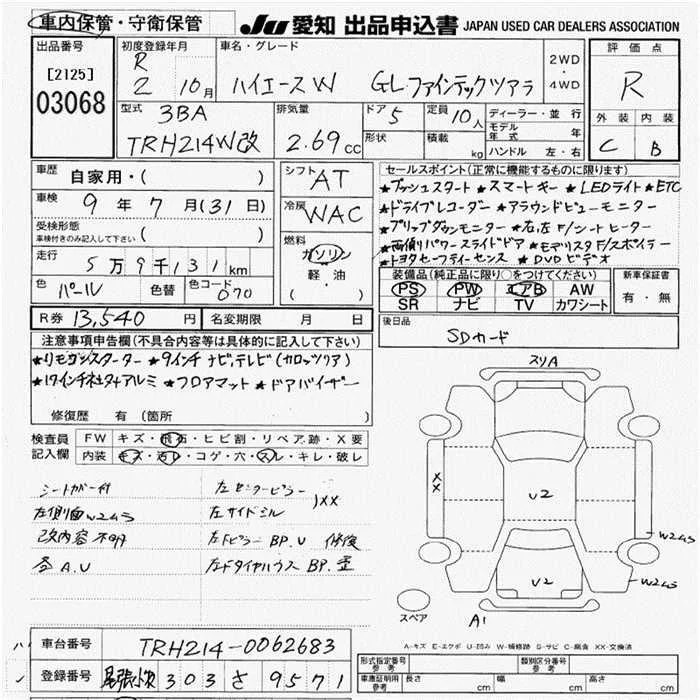 車内保管・守衛保管
JU 愛知 出品申込書 JAPAN USED CAR DEALERS ASSOCIATION
出品番号
[2125]
03068
初度登録年月
R
2 10月
車名・グレード
ハイエースW GL ファインテックツアラ
2WD
・
4WD
評価点
R
型式
3BA
TRH214W改
排気量
2.69cc
ドア 5
定員 10人
形状
積載 kg
ディーラー・並行
モデル年式 年
ハンドル 左・右
外装 内装
C B
車歴
自家用・( )
車検
9年7月(31日)
受検形態
車検付きのみ記入して下さい ( )
走行
5万9千131km
色
パール
色替
色コード
070
シフト
AT
冷房
WAC
燃料
ガソリン
・
軽・油
( )
セールスポイント(正常に機能するものに限ります)
★プッシュスタート ★スマートキー ★LEDライト ★ETC
★ドライブレコーダー ★アラウンドビューモニター
★フリップダウンモニター ★右,左F/シートヒーター
★両側パワースライドドア ★モデリスタF/スポイラー
★トヨタセーフティーセンス ★DVDビデオ
装備品(純正品に限り○をつけてください)
PS PW エアB AW
SR ナビ TV カワシート
新車保証書
有・無
R券 13,540円
名変期限 月 日
後日品
SDカード
注意事項申告欄(不具合内容等は具体的に記入して下さい)
★リモコンスターター ★9インチナビ,テレビ(カロッツリア)
★17インチ社外アルミ ★フロアマット ★ドアバイザー
修復歴 有(箇所 )
検査員
記入欄
FW キズ・飛石・ヒビ割・リペア跡・X要
内装 キズ・汚レ・コゲ・穴・スレ・キレ・破レ
シートカバー付
左側面W2,W3
改内容不明
各A.U
左センターピラー
左サイドシル
)XX
左Fピラー BP.U 修復
スリA
XX
U2
U2
W2W3
W2W3
A1
スペア
A-キズ E-エクボ U-凹み W-補修跡 S-サビ C-腐食 XX-交換済
車台番号
TRH214-0062683
登録番号
尾張小牧 303 さ 9571
型式指定番号
参考
類別区分番号
参考
車庫証明用
参考
長さ cm
幅 cm
高さ cm